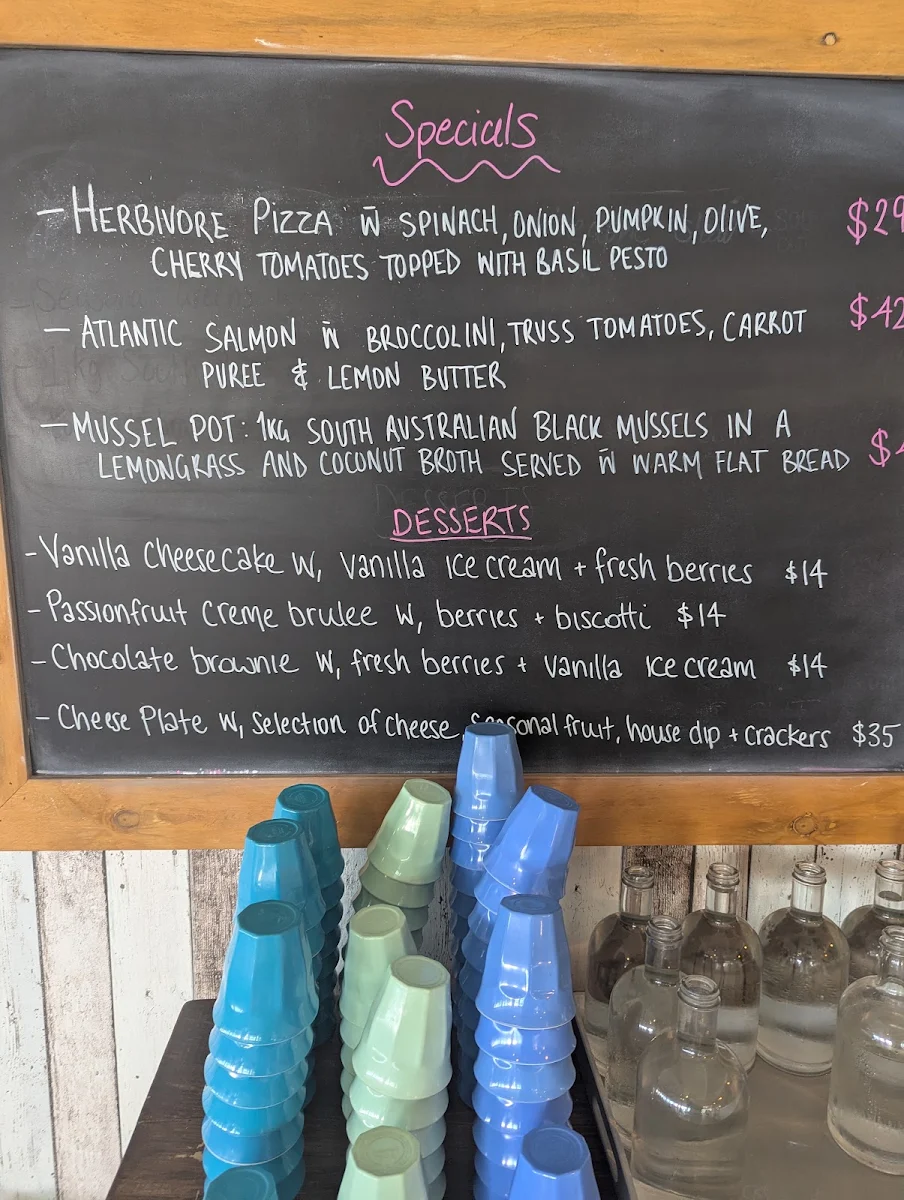 Specials
- HERBIVORE PIZZA W̄ SPINACH, ONION, PUMPKIN, OLIVE, $29
CHERRY TOMATOES TOPPED WITH BASIL PESTO
- ATLANTIC SALMON W̄ BROCCOLINI, TRUSS TOMATOES, CARROT $42
PUREE & LEMON BUTTER
- MUSSEL POT: 1KG SOUTH AUSTRALIAN BLACK MUSSELS IN A
LEMONGRASS AND COCONUT BROTH SERVED W̄ WARM FLAT BREAD
DESSERTS
- Vanilla Cheesecake W, Vanilla Ice cream + fresh berries $14
- Passionfruit Creme brulee W, berries + biscotti $14
- Chocolate brownie W, fresh berries + Vanilla Ice cream $14
- Cheese Plate W, selection of cheese, seasonal fruit, house dip + crackers $35